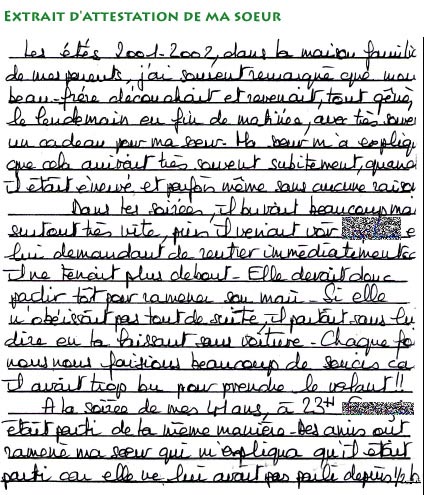 EXTRAIT D'ATTESTATION DE MA SOEUR
Les étés 2001-2002, dans la maison famili
de mes parents, j'ai souvent remarqué que mon
beau-frère découchait et revenait, tout gêné,
le lendemain en fin de matinée, avec très souven
un cadeau pour ma sœur. Ma sœur m'a expliqu
que cela arrivait très souvent subitement, quand
il était énervé et parfois même sans aucune raison
Dans les soirées, il buvait beaucoup mai
surtout très vite, puis il venait voir e
lui demandant de rentrer immédiatement ca
il ne tenait plus debout - Elle devait donc
partir tôt pour ramener son mari - Si elle
n'obéissait pas tout de suite, il partait sans lui
dire en la laissant sans voiture - Chaque fo
nous nous faisions beaucoup de soucis ca
il avait trop bu pour prendre le volant !!
A la soirée de mes 41 ans, à 23H
était parti de la même manière - Des amis ont
ramené ma sœur qui m'expliqua qu'il était
parti car elle ne lui avait pas parlé depuis 1/2 h